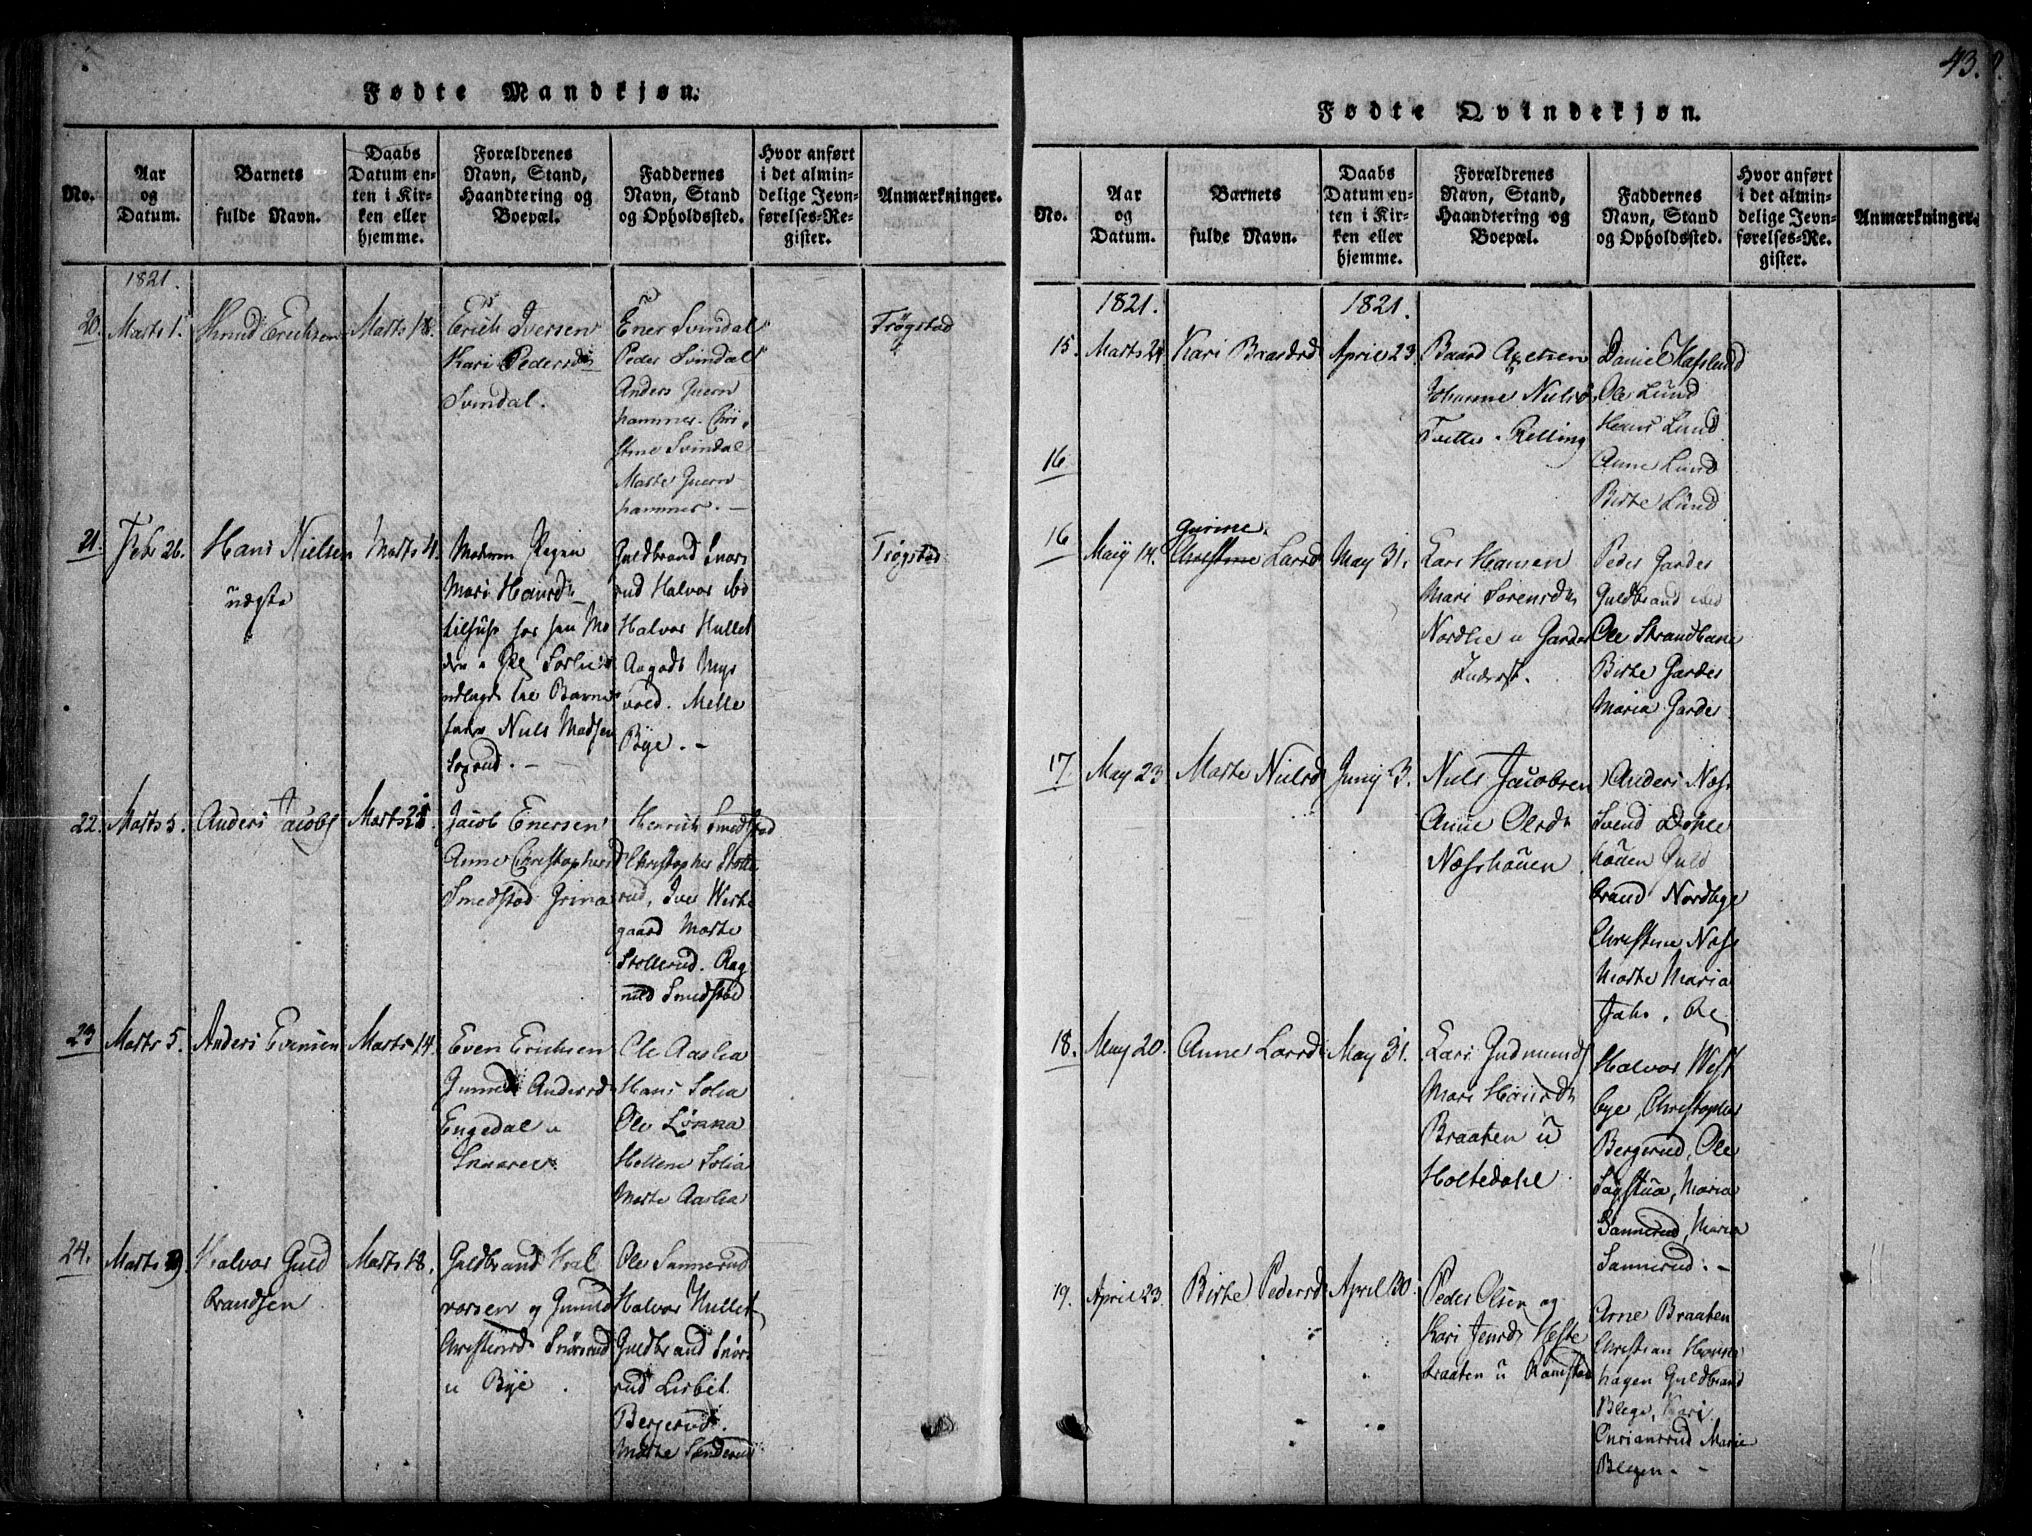 43.
Fødte Mandkjøn.
No.
Aar
og
Datum.
Barnets
fulde Navn.
Daabs
Datum en-
ten i Kir-
ken eller
hjemme.
Forældrenes
Navn, Stand,
Haandtering og
Boepæl.
Faddernes
Navn, Stand
og Opholdssted.
Hvor anført
i det almin-
delige Jevn-
førelses-Re-
gister.
Anmærkninger.
1821.
20.
Marts 1.
Knud Erichsen
Marts 18.
Erich Iversen
Kari Pedersd
Svindal.
Ener Svindal
Peder Svindal
Anders Quern
hammer. Chri
stine Svindal
Marte Quern
hammer. -
Trøgstad
21.
Febr 26.
Hans Nielsen
uægte
Marts 4.
Moderen Pigen
Mari Hansd
tilhuus hos sin Mo
udlagt til Barne
fader Niels Madsen
Guldbrand Snor
rud Halvor ibd
Halvor Hullet
Aagodt Mys
vold. Melle
Bye. -
Trøgstad
22.
Marts 5.
Anders Jacobs
Marts 25
Jacob Enersen
Anne Christophersd
Smedstad Grina
Henrich Smedstad
Christopher Stolle
rud, Iver Weste
gaard Marte
Stollerud. Rag
nild Smedstad
23
Marts 5.
Anders Evensen
Marts 14.
Even Erichsen
Gunnild Andersd
Engedal u
Ole Aaslia
Hans Solia
Ole Lønna
Hellene Solia
Marte Aaslia
24.
Marts 9.
Halvor Guld
brandsen
Marts 18.
Guldbrand Hal
vorsen og Gunild
Christensd Snorsrud
u Bye.
Ole Sannerud
Halvor Hullet
Guldbrand Snor
rud Lisbet
Bergerud.
Marte Sanderud
Fødte Qvindekjøn.
No.
Aar
og
Datum.
Barnets
fulde Navn.
Daabs
Datum en-
ten i Kir-
ken eller
hjemme.
Forældrenes
Navn, Stand,
Haandtering og
Boepæl.
Faddernes
Navn, Stand
og Opholdssted.
Hvor anført
i det almin-
delige Jevn-
førelses-Re-
gister.
Anmærkninger.
1821.
1821.
15.
Marts 24
Kari Baardsd
April 23.
Baard Axelsen
Johanne Nielsd
Tvetter. Relling
Daniel Haslund
Ole Lund
Hans Lund
Anne Lund
Birte Lund
16
16
Maij 14.
Gurine
Christine Larsd
May 31.
Lars Hansen
Mari Sørensd
Nordlie u Garder
Inderst.
Peder Garder
Guldbrand ibid
Ole Strandbane
Birte Garder
Maria Garder
17.
May 23
Marte Nielsd
Junij 3.
Niels Jacobsen
Anne Olsd
Næshouen
Anders Næs
Svend Dahle
houen Guld
brand Nordbye
Christine Næs
Marte Maria
18.
May 20.
Anne Larsd
May 31.
Lars Gudmunds
Mari Hansd
Braaten u
Holtedahl
Halvor West
bye, Christopher
Bergerud, Ole
Sagstua, Maria
Sannerud, Maria
Sannerud. -
19.
April 23
Birte Pedersd
April 30.
Peder Olsen og
Kari Jensd Heste
braaten u Ramstad
Arne Braaten
Christian Hauna
hagen Guldbrand
Blege, Kari
Curiansrud Marie
Blegen -